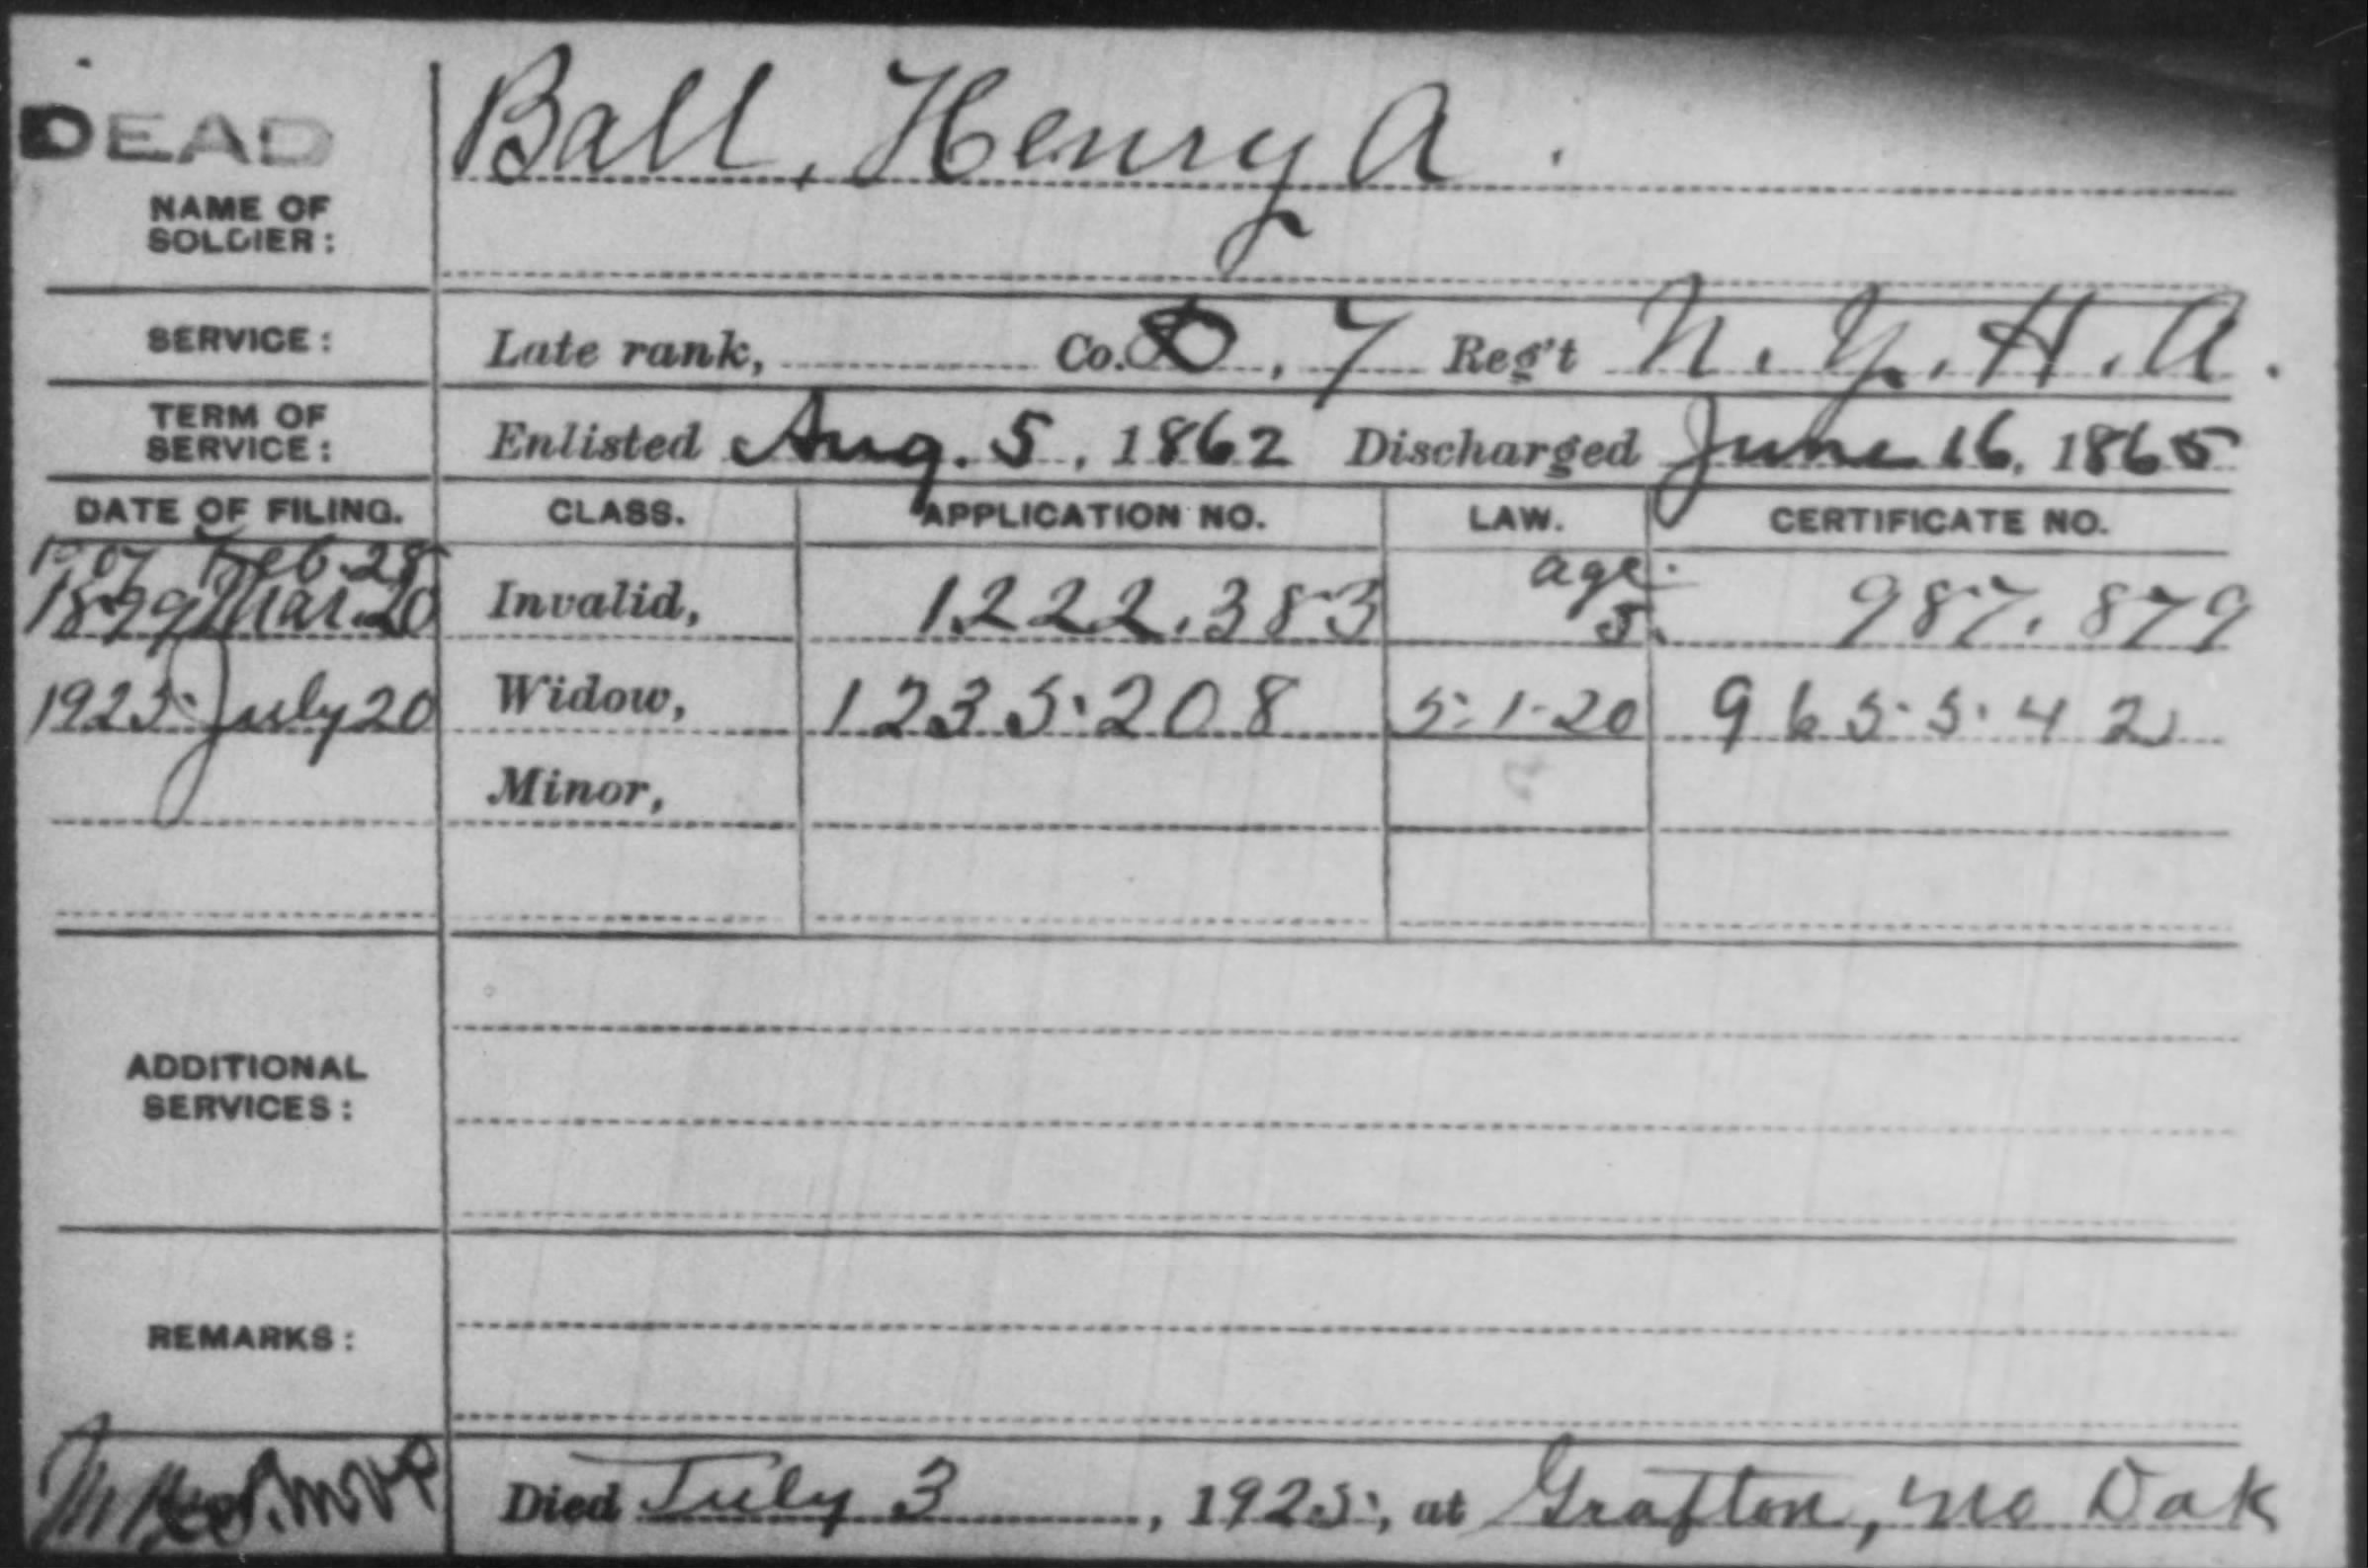 DEAD
NAME OF
SOLDIER:
Ball, Henry A.
SERVICE: Late rank, Co. D, 7 Reg't N.Y.H.A.
TERM OF
SERVICE: Enlisted Aug. 5, 1862 Discharged June 16, 1865
DATE OF FILING. CLASS. APPLICATION NO. LAW. CERTIFICATE NO.
1907 Feb. 28 age.
1899 Mar. 20 Invalid, 1.222.383 5. 987.879
1925 July 20 Widow, 1235208 5-1-20 965542
Minor,
ADDITIONAL
SERVICES:
REMARKS:
Died July 3, 1925, at Grafton, No Dak